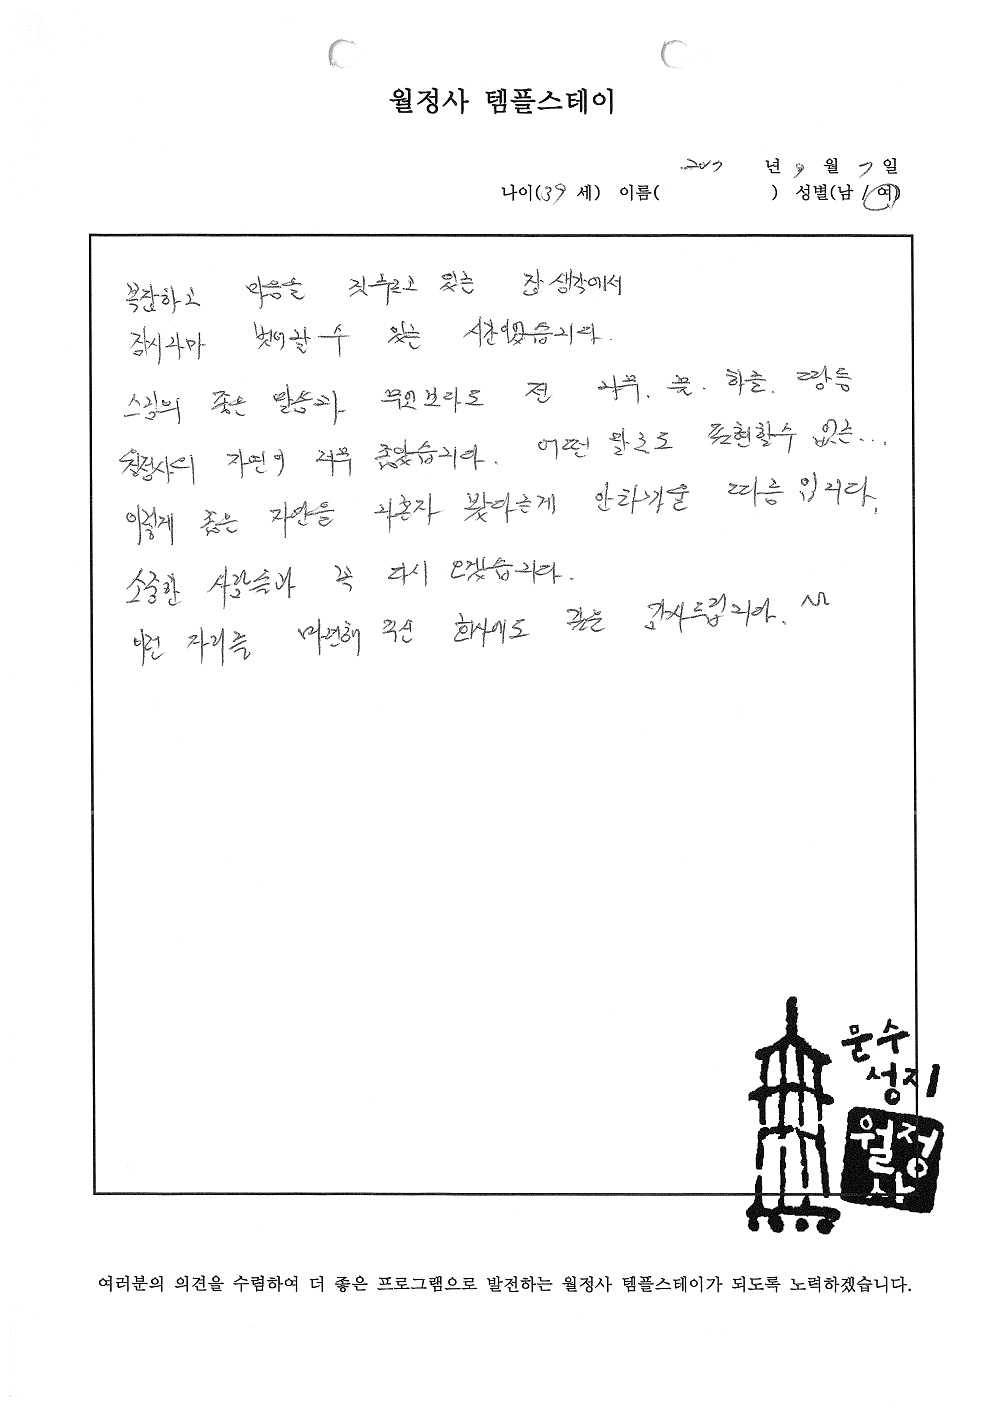 월정사 템플스테이
2017 년 9 월 7 일
나이(39 세) 이름( ) 성별(남 / 여)
복잡하고 마음을 짓누르고 있는 잡 생각에서
잠시나마 벗어날 수 있는 시간이였습니다.
스님의 좋은 말씀과 무엇보다도 전 나무, 꽃, 하늘, 바람등
월정사의 자연이 너무 좋았습니다. 어떤 말로도 표현할수 없는...
이렇게 좋은 자연을 나혼자 봤다는게 안타까울 따름 입니다.
소중한 사람들과 꼭 다시 오겠습니다.
이런 자리를 마련해 주신 회사에도 감사드립니다.
문수
성지
월정
사
여러분의 의견을 수렴하여 더 좋은 프로그램으로 발전하는 월정사 템플스테이가 되도록 노력하겠습니다.